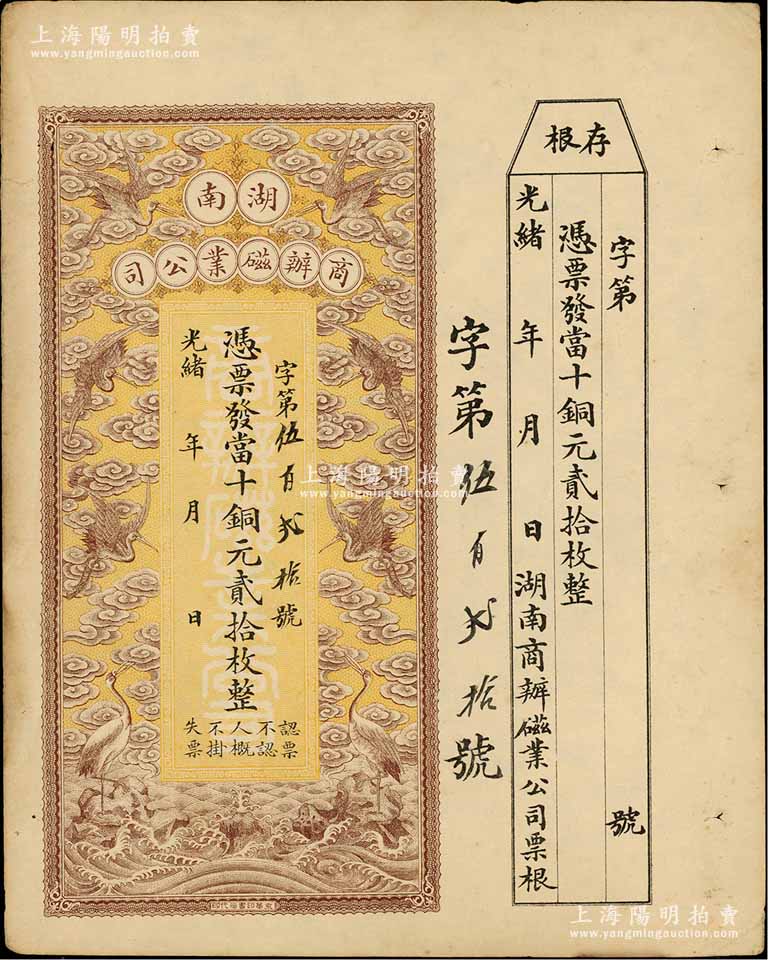 上海陽明拍賣
www.yangmingauction.com
上海陽明拍賣
www.yangmingauction.com
存根
字第 號
憑票發當十銅元貳拾枚整
光緒 年 月 日湖南商辦磁業公司票根
字第伍百弍拾號
湖南
商辦磁業公司
字第伍百弍拾號
憑票發當十銅元貳拾枚整
光緒 年 月 日
認票
不認
人概
不掛
失票
商辦磁業公司
京華印書局代印
上海陽明拍賣
www.yangmingauction.com
上海陽明拍賣
www.yangmingauction.com